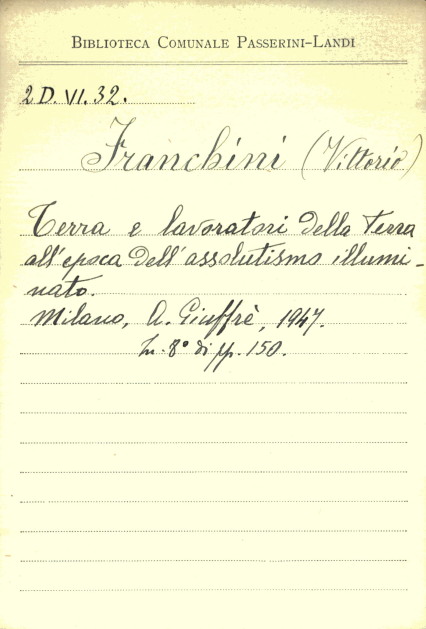 BIBLIOTECA COMUNALE PASSERINI-LANDI
2 D. VI. 32.
Franchini (Vittorio)
Terra e lavoratori della terra
all'epoca dell'assolutismo illumi-
nato.
Milano, A. Giuffrè, 1947.
In-8° di pp. 150.